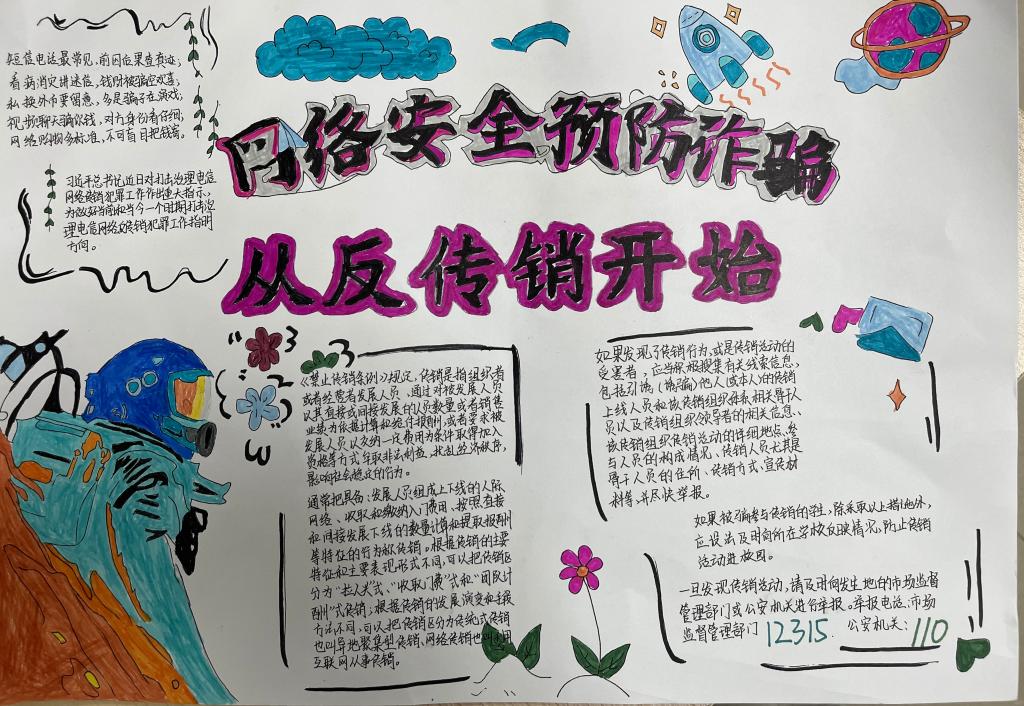 网络安全预防诈骗
从反传销开始
短信电话最常见,前因后果查真证;
看病消灾讲迷信,钱财被骗空欢喜;
私换外币要留意,多是骗子在演戏;
视频聊天骗你钱,对方身份看仔细;
网络购物多标准,不可盲目把钱寄。
习近平总书记近日对打击治理电信
网络传销犯罪工作作出重大指示,
为做好当前和当今一个时期打击治
理电信网络反传销犯罪工作指明
方向。
《禁止传销条例》规定,传销是指组织者
或者经营者发展人员,通过对被发展人员
以其直接或间接发展的人员数量或者销售
业绩为依据计算和给付报酬,或者要求被
发展人员以交纳一定费用为条件取得加入
资格等方式牟取非法利益,扰乱经济秩序,
影响社会稳定的行为。
通常把具备:发展人员组成上下线的人际
网络、收取和缴纳入门费用、按照直接
和间接发展下线的数量计算和提取报酬
等特征的行为称传销。根据传销的主要
特征和主要表现形式不同,可以把传销区
分为"拉人头"式、"收取门费"式和"团队计
酬"式传销;根据传销的发展演变和手段
方法不同,可以把传销区分为传统式传销
也叫异地聚集型传销、网络传销也叫利用
互联网从事传销。
如果发现了传销行为,或是传销活动的
受害者,应当积极搜集有关线索信息,
包括引诱(诱骗)他人(或本人)的传销
上线人员和该传销组织体系相关骨干人
员以及传销组织领导者的相关信息、
该传销组织传销活动的详细地点、参
与人员的构成情况、传销人员尤其是
骨干人员的住所、传销方式、宣传材
料等,并尽快举报。
如果被骗参与传销的学生,除采取以上措施外,
应设法及时向所在学校反映情况,防止传销
活动进校园。
一旦发现传销活动,请及时向发生地的市场监督
管理部门或公安机关进行举报。举报电话:市场
监督管理部门12315. 公安机关:110